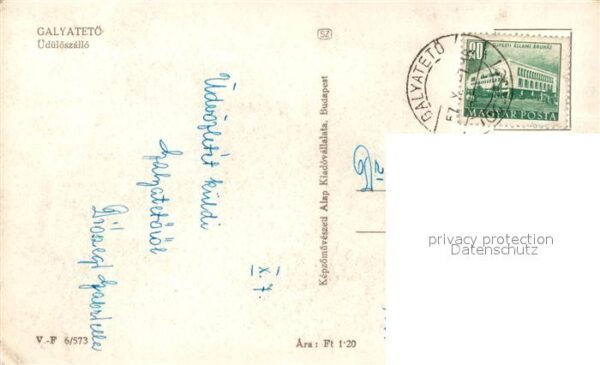 GALYATETŐ
Üdülőszálló
SZ
GALYATETŐ
20
ÚJPESTI ÁLLAMI ÁRUHÁZ
MAGYAR POSTA
Üdvözletét küldi
Galyatetőről
Diószegi Gabriella
X. 7.
Képzőművészeti Alap Kiadóvállalata, Budapest
privacy protection
Datenschutz
V.-F 6/573
Ára: Ft 1·20